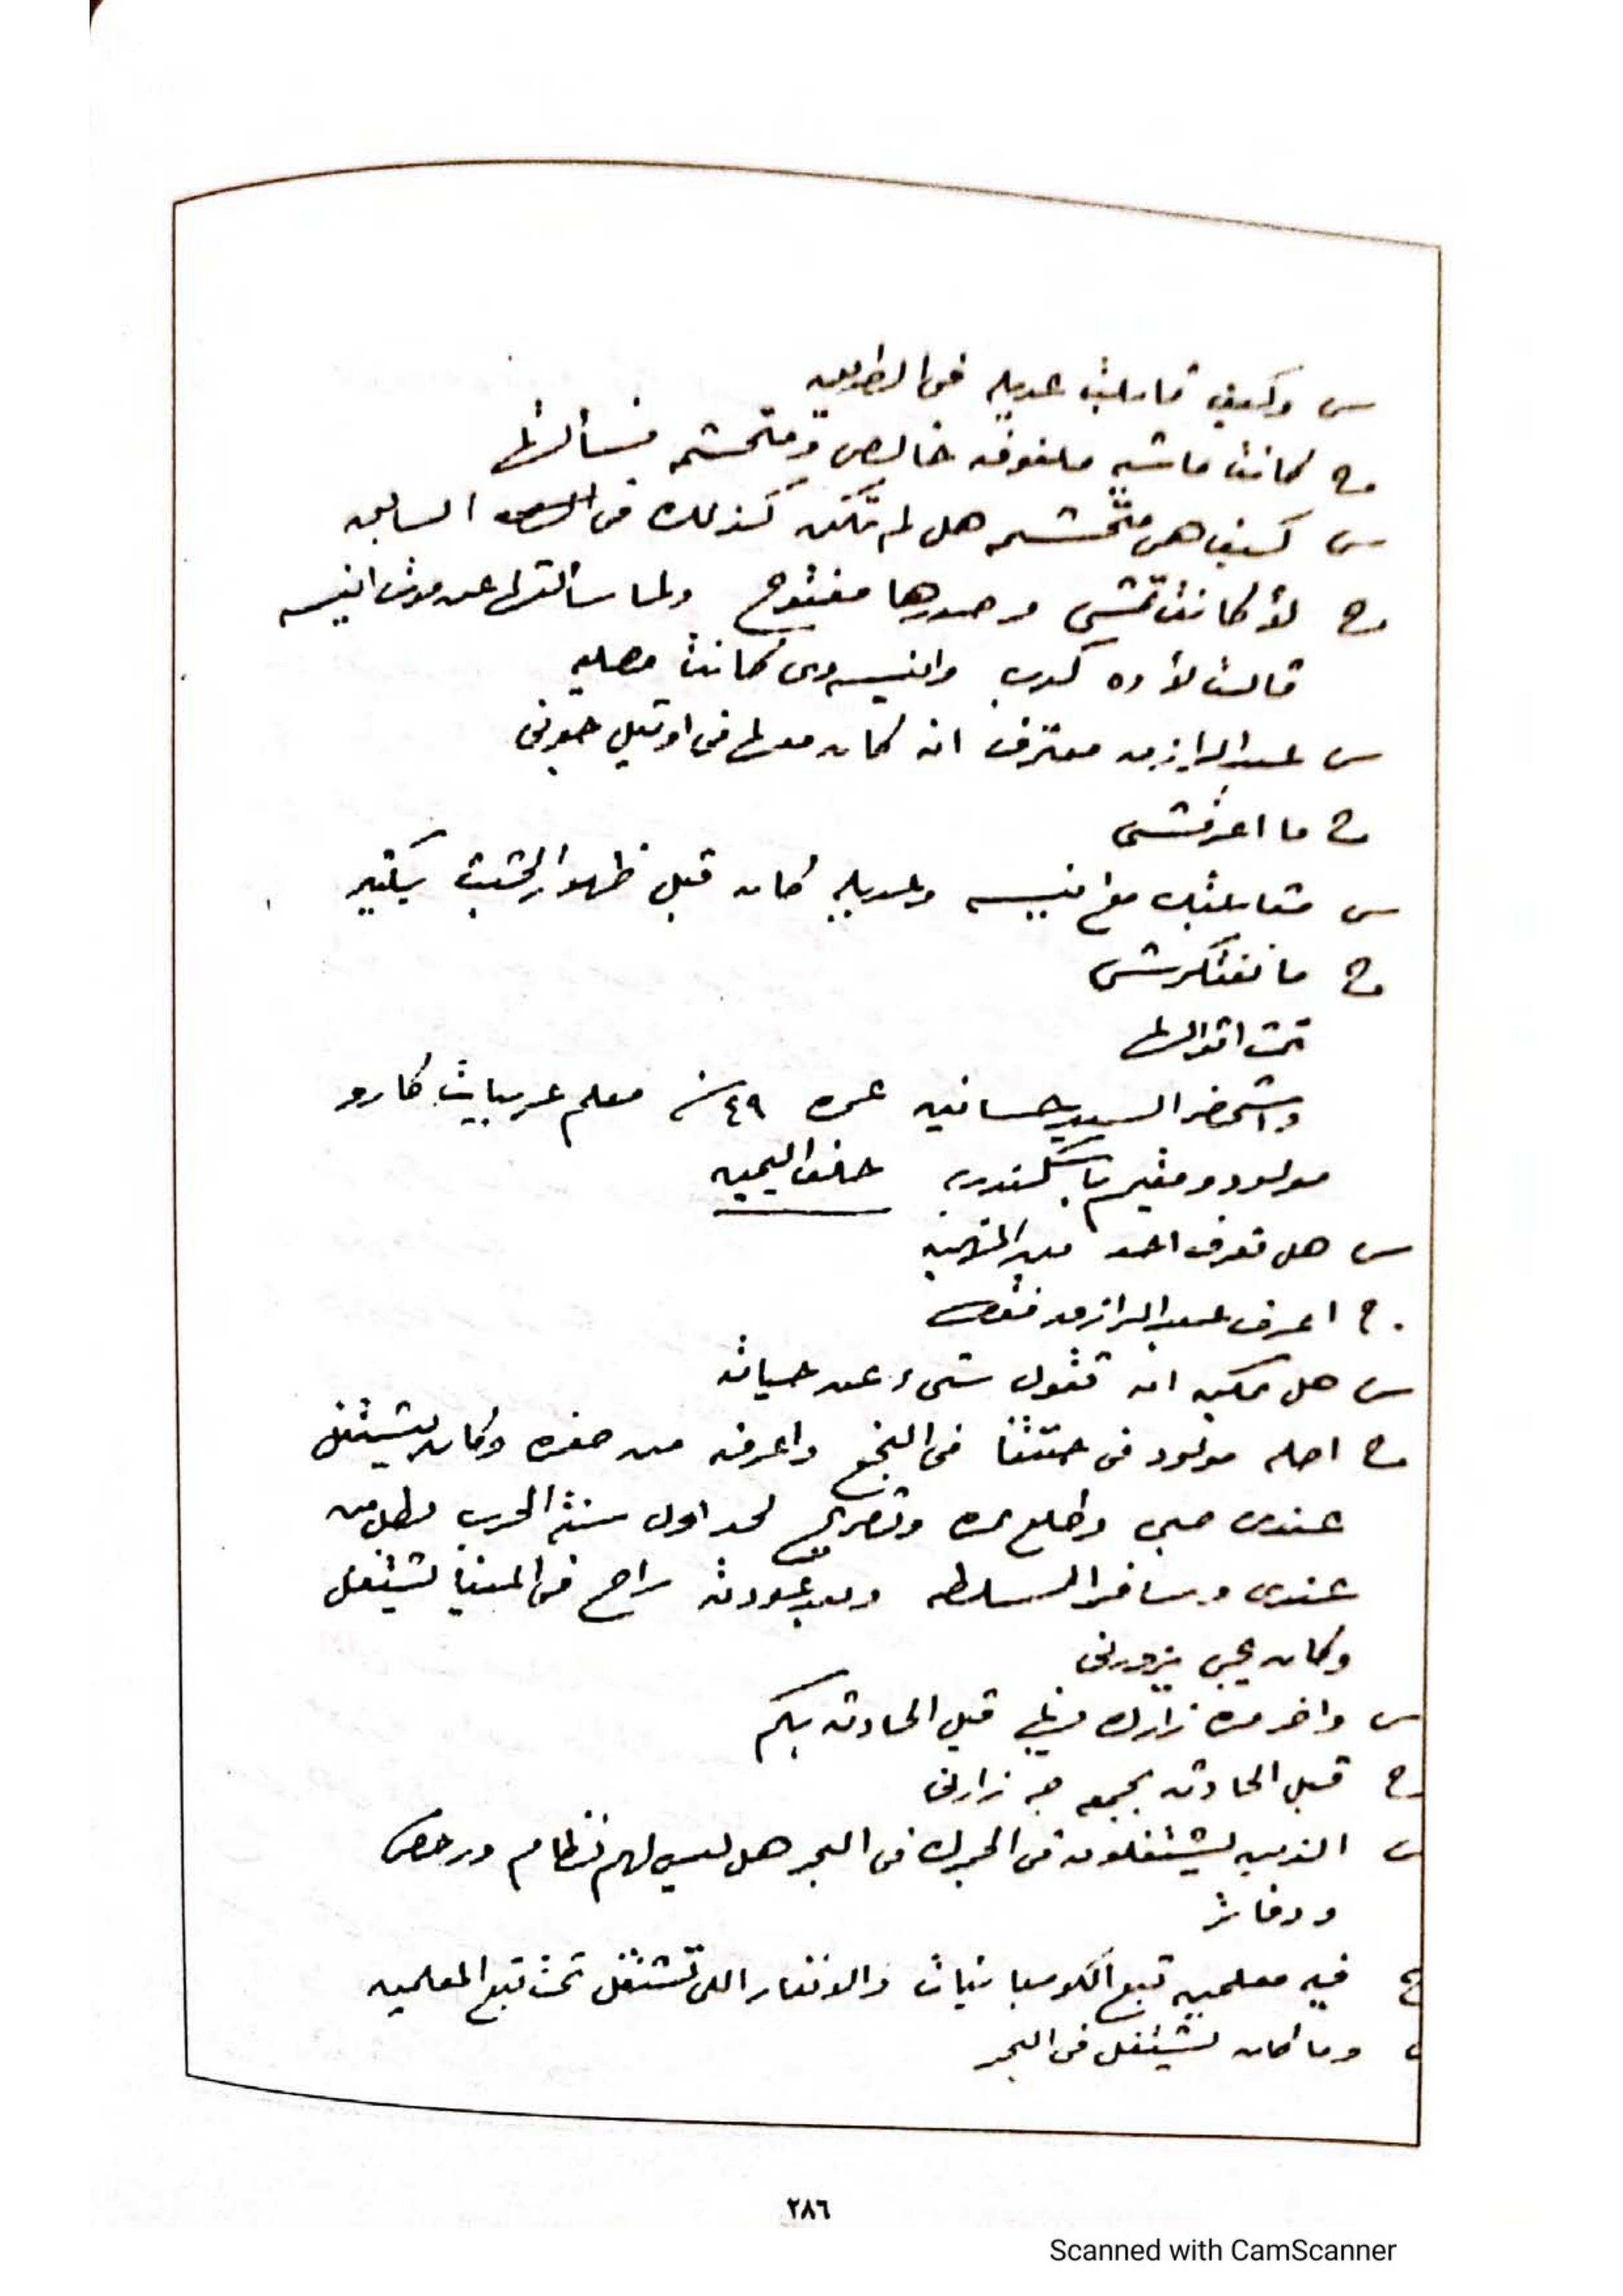 س وكيف قابلت عديله فى الطريق
ج كانت ماشيه ملفوفه خالص ومتحشمه فسألتها
س كيف هى متحشمه هل لم تكن كذلك فى السابق
ج لأ كانت تمشى وصدرها مفتوح ولما سألتها عن موت انيسه
قالت لأ ده كدب وانيسه دى كانت مصليه
س عبد الرازق معترف انه كان معها فى اوتيل جونى
ج ما اعرفشى
س مقابلتك مع انيسه وعديله كان قبل ظهور الجثث بكتير
ج ما نفتكرشى
تمت اقوالها
واستحضر السيد حسانين عمره ٤٩ سنه معلم عربيات كارو
مولود ومقيم باسكندريه حلف اليمين
س هل تعرف احد من المتهمين
ج اعرف عبد الرازق فقط
س هل يمكن ان تقول شىء عن حياته
ج اصله مولود فى حتتنا فى النجع واعرفه من صغره وكان يشتغل
عندى صبى وطلع نمره وتصريح لحد اول سنة الحرب بطل من
عندى وسافر السلطه وبعد عودته راح فى المينا يشتغل
وكان يجى يزورنى
س واخر مره زارك فيها قبل الحادثه بكم
ج قبل الحادثه بجمعه جه زارنى
س الذين يشتغلون فى الجمرك فى البحر هل ليس لهم نظام ورخص
ودفاتر
ج فيه معلمين تبع الكومبانيات والانفار اللى تشتغل تحت تبع المعلمين
وما كان يشتغل فى البحر
٢٨٦
Scanned with CamScanner